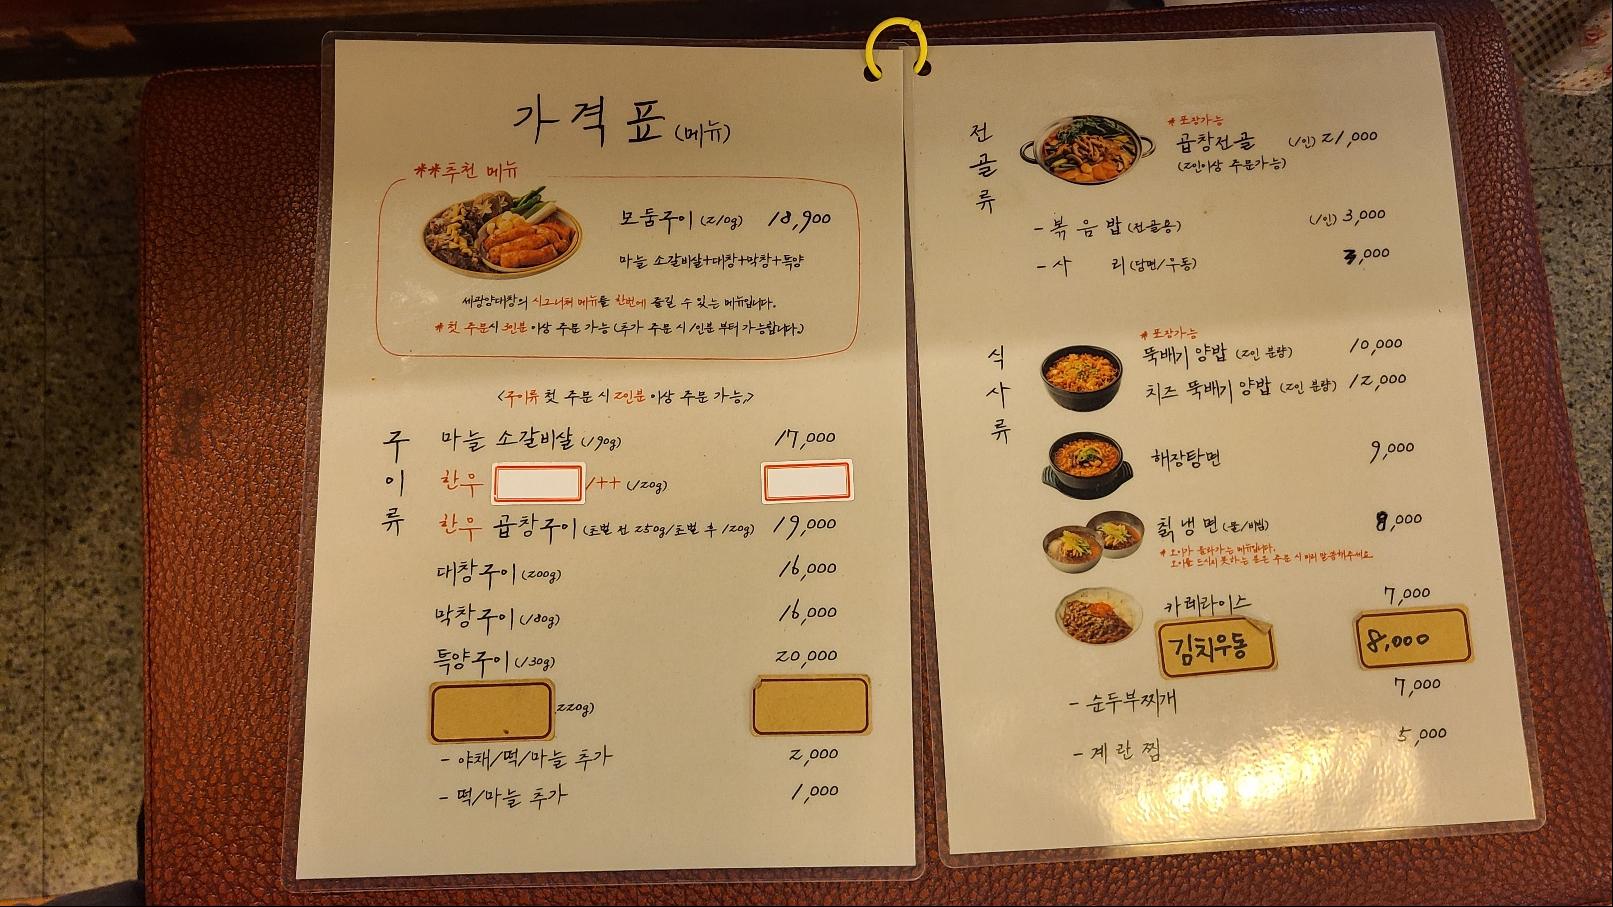 가격표 (메뉴)
**추천 메뉴
모둠구이 (210g) 18,900
마늘 소갈비살+대창+막창+특양
세광양대창의 시그니처 메뉴를 한번에 즐길 수 있는 메뉴입니다.
* 첫 주문시 3인분 이상 주문 가능 (추가 주문 시 1인분 부터 가능합니다.)
<구이류 첫 주문 시 2인분 이상 주문 가능>
구이류
마늘 소갈비살 (190g) 17,000
한우 1++ (120g)
한우 곱창구이 (초벌 전 250g/초벌 후 120g) 19,000
대창구이 (200g) 16,000
막창구이 (180g) 16,000
특양구이 (130g) 20,000
220g)
- 야채/떡/마늘 추가 2,000
- 떡/마늘 추가 1,000
전골류
* 포장가능
곱창전골 (1인) 21,000
(2인이상 주문가능)
- 볶음밥 (전골용) (1인) 3,000
- 사리 (당면/우동) 3,000
식사류
* 포장가능
뚝배기 양밥 (2인 분량) 10,000
치즈 뚝배기 양밥 (2인 분량) 12,000
해장탕면 9,000
칡냉면 (물/비빔) 8,000
* 오이가 올라가는 메뉴입니다.
오이를 드시지 못하는 분은 주문 시 미리 말씀해주세요.
카레라이스 7,000
김치우동 8,000
- 순두부찌개 7,000
- 계란찜 5,000